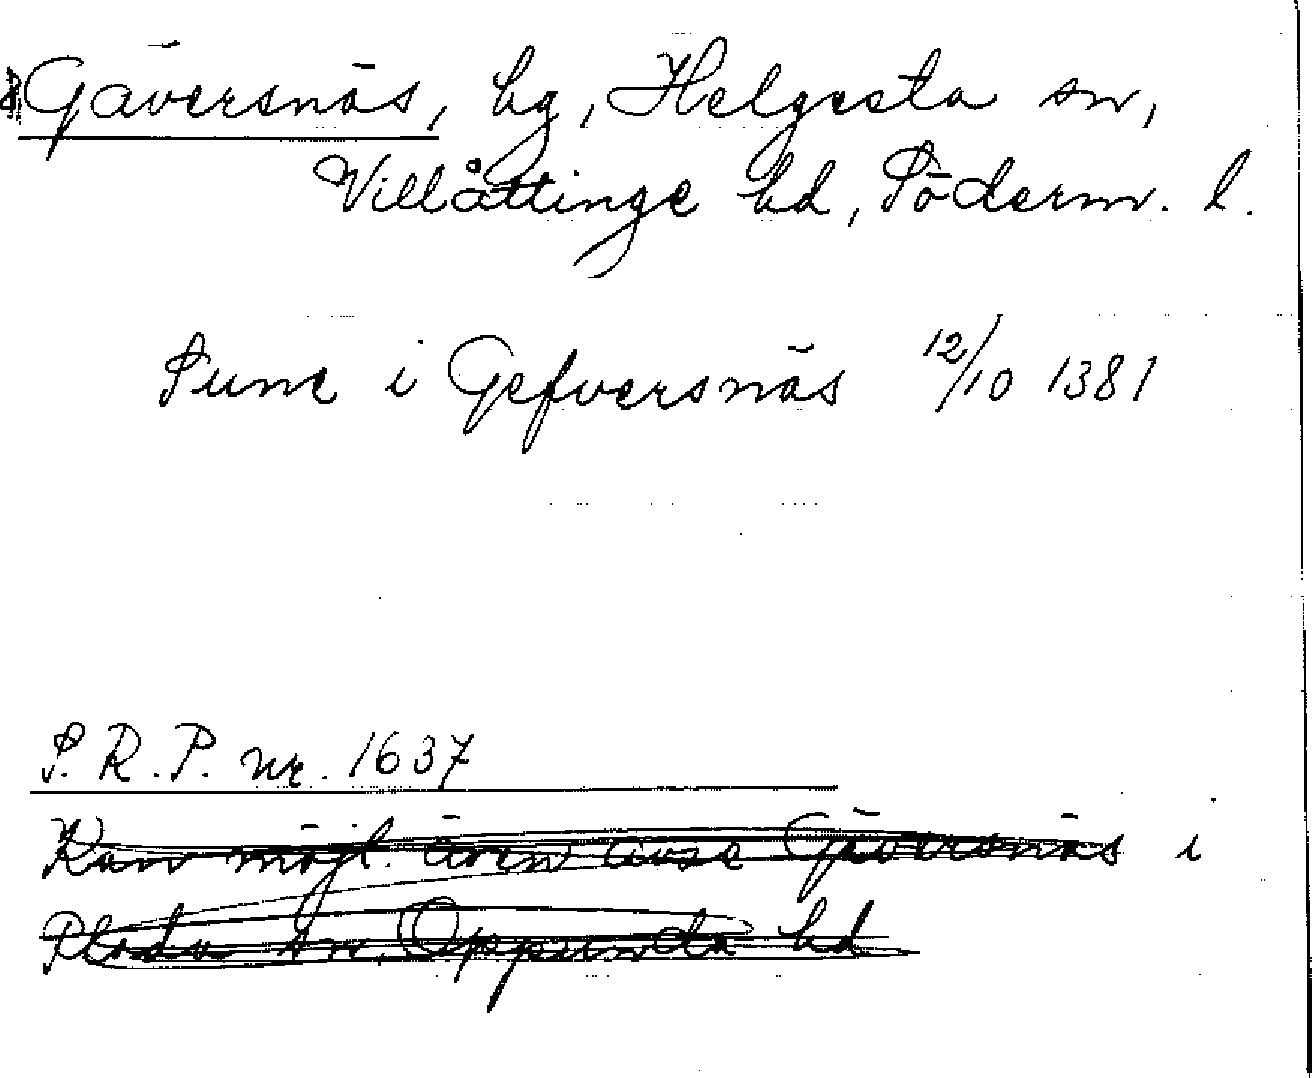 Gäversnäs, hg, Helgesta sn,
Villåttinge hd, Söderm. l.
Sune i Gefversnäs 12/10 1381
S.R.P. nr. 1637
Kan möjl. även avse Gäversnäs i
Floda sn, Oppunda hd